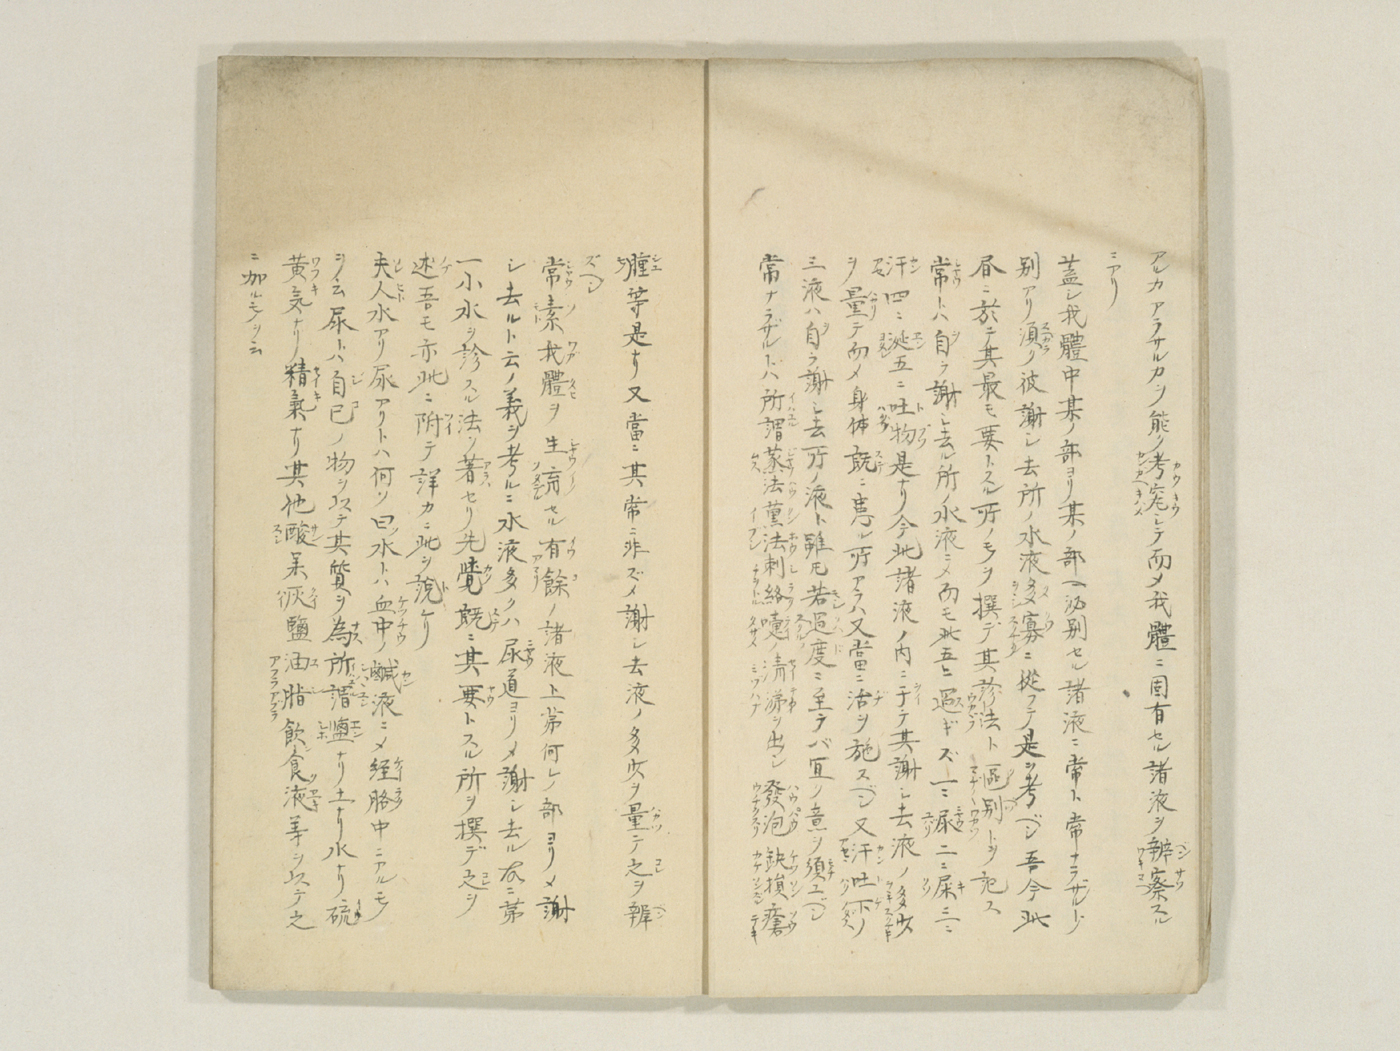 アルカアラサルカヲ能ク考究シテ而メ我體ニ固有セル諸液ヲ辨察スル
ニアリ
蓋シ我體中某ノ部ヨリ某ノ部ヘ泌別セル諸液ニ常ト常ナラザルト
別アリ須ク彼謝シ去所ノ水液多寡ニ從フテ是ヲ考ベシ吾今此
昼ニ於テ其最モ要トスル所ノモヲ撰デ其診法ト區別トヲ記ス
常トハ自ラ謝シ去ル所ノ水液ニメ而モ此五ヒ過ギズ一ニ尿二ニ屎三ニ
汗四ニ涎五ニ吐物是ナリ今此諸液ノ内ニ于テ其謝シ去液ノ多少
ヲ量テ而メ身体既ニ害ル所アラハ又當ニ治ヲ施スベシ又汗吐下ノ
三液ハ自ラ謝シ去所ノ液ト雖モ若過度ニ至テバ宜ク意ヲ須ユベシ
常ナラザルトハ所謂蒸法薫法刺絡嚔ノ清涕ヲ出シ發泡缺損瘡
腫等是ナリ又當ニ其常ニ非ズメ謝シ去液ノ多少ヲ量テ之ヲ辨
ズベシ
常素我體ヲ生育セル有餘ノ諸液ト第何レノ部ヨリメ謝
シ去ルト云ノ義ヲ考ルニ水液多クハ尿道ヨリメ謝シ去ル故ニ第
一小水ヲ診スル法ヲ著セリ先覺既ニ其要トスル所ヲ撰デ之ヲ
述吾モ亦此ニ附テ詳カニ此ヲ説ケリ
夫人水アリ尿アリトハ何ソ曰水トハ血中ノ鹹液ニメ経絡中ニアルモ
ヲ云尿トハ自已ノ物ヲ以テ其質ヲ為所謂鹽ナリ土ナリ水ナリ硫
黄気ナリ精氣ナリ其他酸呆灰鹽油脂飲食液等ヲ以テ之
ニ加ルモノヲ云